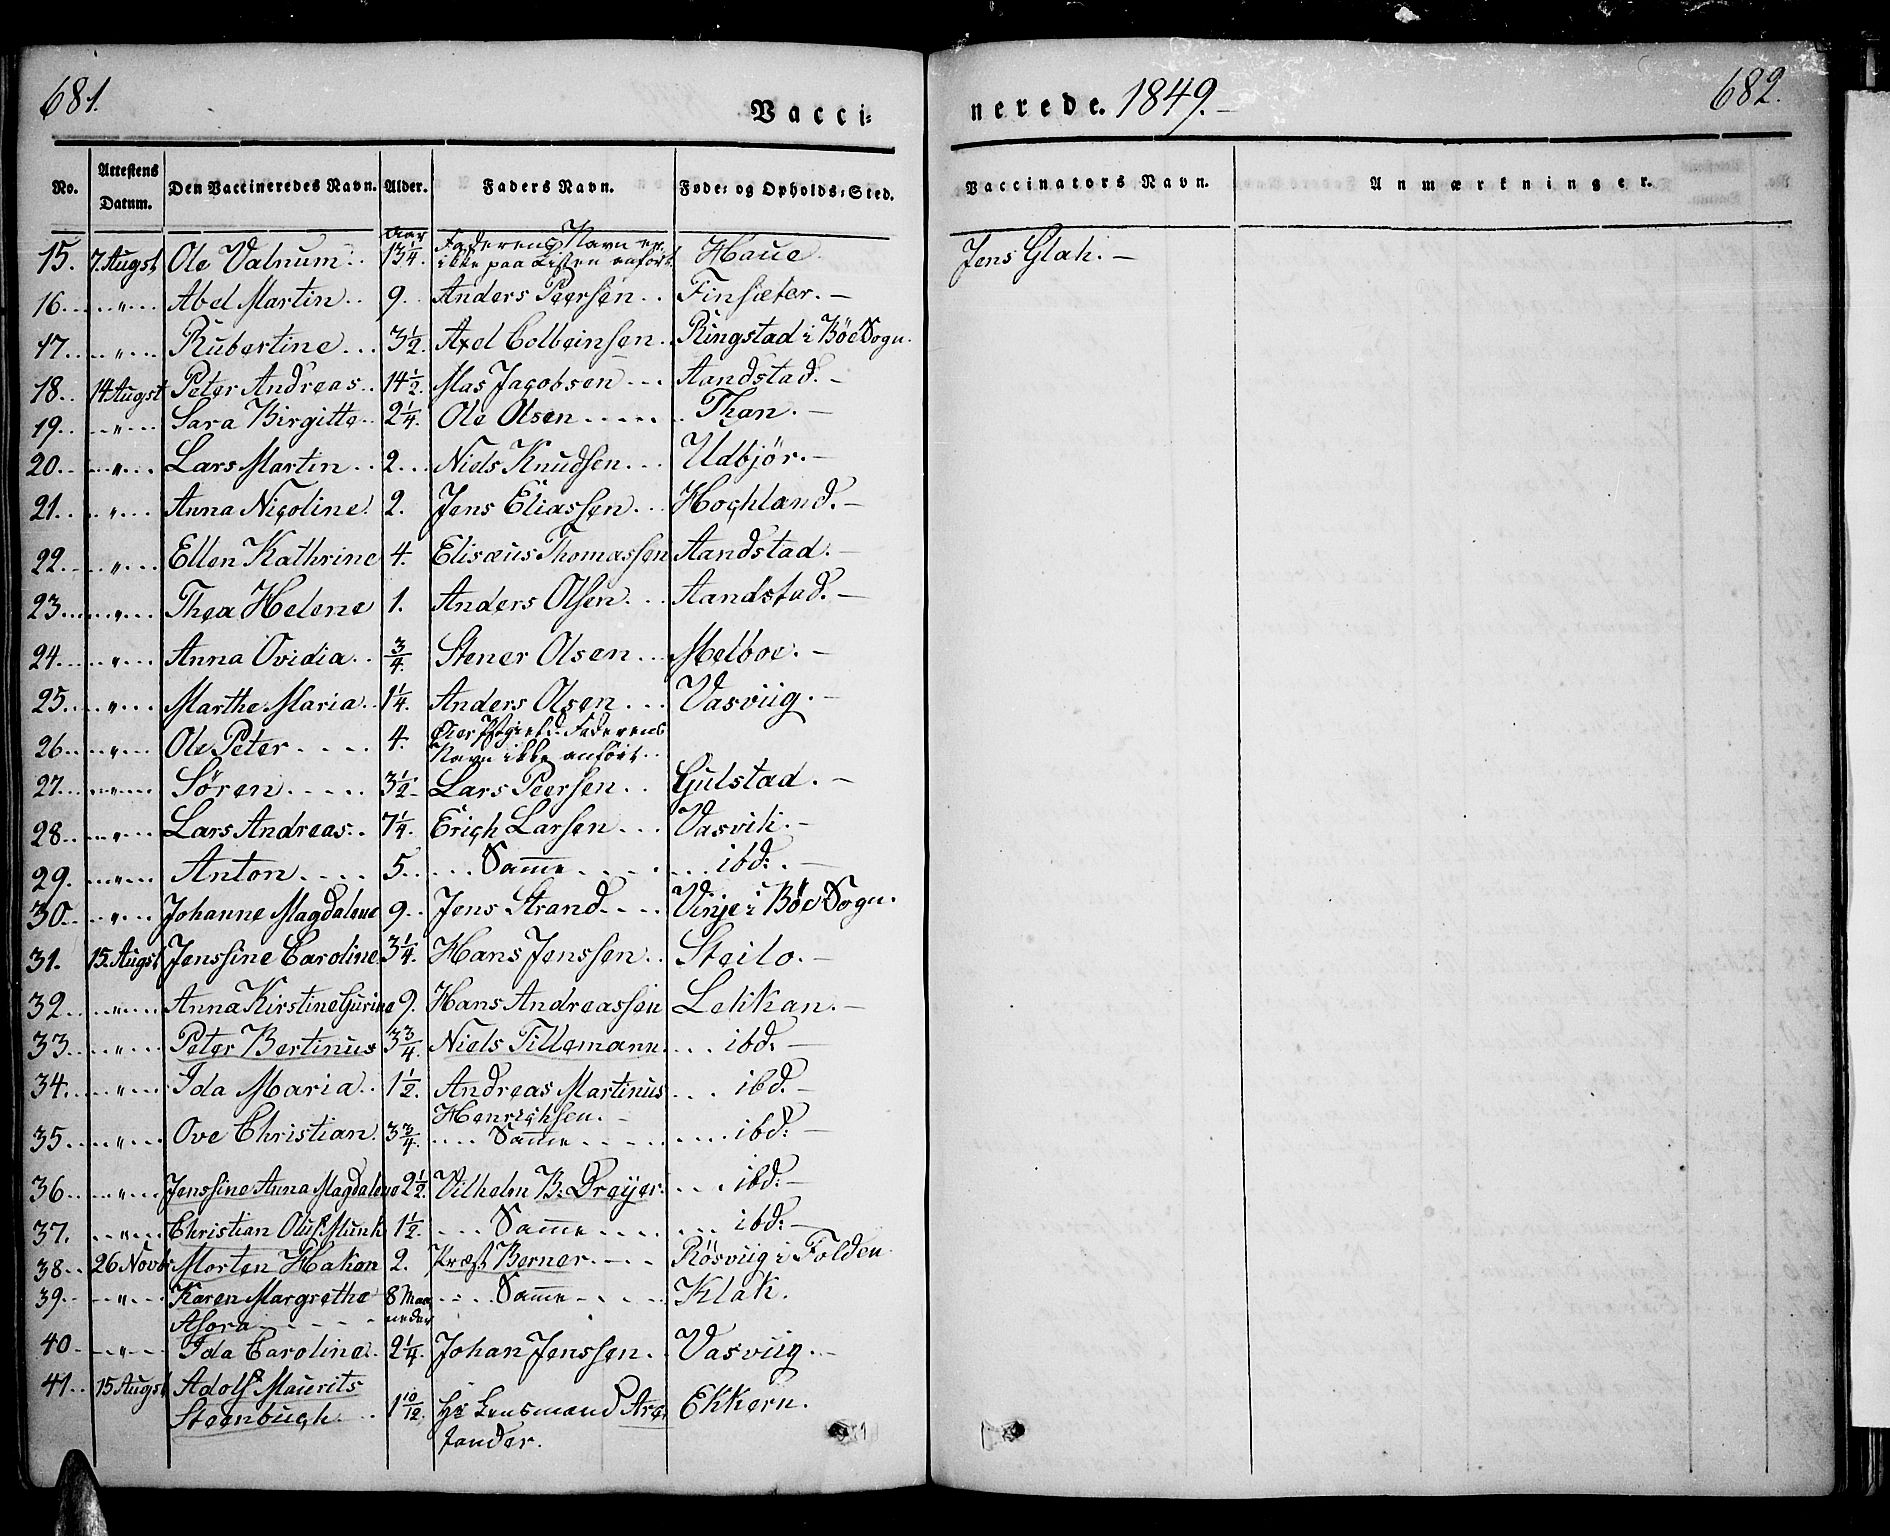 681.
Vacci=
nerede. 1849.
682.
No. Attestens Datum. Den Vaccineredes Navn. Alder. Faders Navn. Føde= og Opholds=Sted. Vaccinators Navn. Anmærkninger.
15. 7. Augst Ole Valnum. Aar 13 1/4. Faderens Navn er ikke paa Listen anført. Haue. Jens Glah. —
16... „ Abel Martin.. 9. Anders Peersen.. Finsæter. —
17... „ Rubertine... 3 1/2. Axel Colbeinsen. Ringstad i Böe Sogn.
18.. 14. Augst Peter Andreas.. 14 1/2. Mas Jacobsen... Aandstad. —
19.. „ Sara Birgitte.. 2 1/4. Ole Olsen..... Than. —
20.. „ Lars Martin.. 2... Niels Knudsen... Udbjör. —
21... „ Anna Nicoline. 2. Jens Eliassen... Hochland. —
22... „ Ellen Kathrine 4. Elisæus Thomassen Aandstad. —
23... „ Thea Helene 1. Anders Olsen... Aandstad. —
24... „ Anna Ovidia.. 3/4. Stener Olsen... Melboe. —
25... „ Marthe Maria.. 1 1/4. Anders Olsen... Vasviig. —
26... „ Ole Peter.... 4. Faderens Navn ikke anført..
27... „ Sören..... 3 1/2 Lars Peersen.. Gulstad. —
28... „ Lars Andreas.. 7 1/4. Erich Larsen... Vasvik. —
29. „ Anton.... 5. ... Samme.... ... ibd:. —
30... „ Johanne Magdalene 9.. Jens Strand.... Vinje i Böe Sogn.
31. 15. Augst Jenssine Caroline. 3 1/4. Hans Jenssen.. Steilo. —
32... „ Anna Kirstine Gurine 9. Hans Andreassen Lekkan. —
33... „ Peter Bertinus 3 3/4. Niels Tillemann. ... ibd: —
34... „ Ida Maria.. 1 1/2. Andreas Martinus Henrichsen. — ... ibd. —
35... „ Ove Christian. 3 3/4. .... Samme..... .... ibd: —
36... „ Jenssine Anna Magdalene 2 1/2. Vilhelm B: Dreyer. ... ibd: —
37. „ Christian Oluf Munk 1 1/2. ... Samme.... ... ibd: —
38.. 26 Novbr Morten Hakon 2. Præst Berner.... Rösviig i Folden.
39.. „ Karen Margrethe Asora..... 8 Maaneder .... Samme.... Klak.
40. „ Ida Caroline.. 2 1/4. Johan Jenssen.. Vasviig. —
41.. 15 Augst Adolf Maurits Steenbuch.. 1 10/12. Hr Lensmand Arctander. Ekkern.